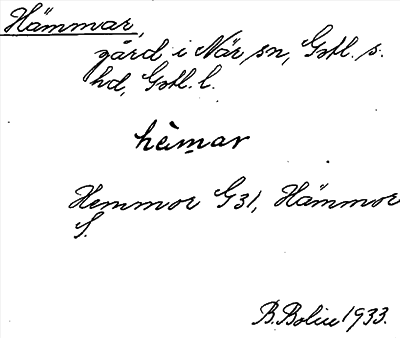 Hämmar,
gård i När sn, Gotl. s.
hd, Gotl. l.
hèmar
Hemmor G31, Hämmor
S.
B. Bolin 1933.